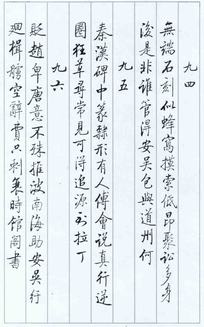 九四
無端石刻似蜂窩摸索低昂聚訟多身
後是非誰管得安吳包與道州何
九五
秦漢碑中篆隸形有人傅會說真行逆
圈狂草尋常見可得追源到拉丁
九六
貶趙卑唐意不殊推波南海助安吳
廻楫艣空辭費只刺衰時館閣書